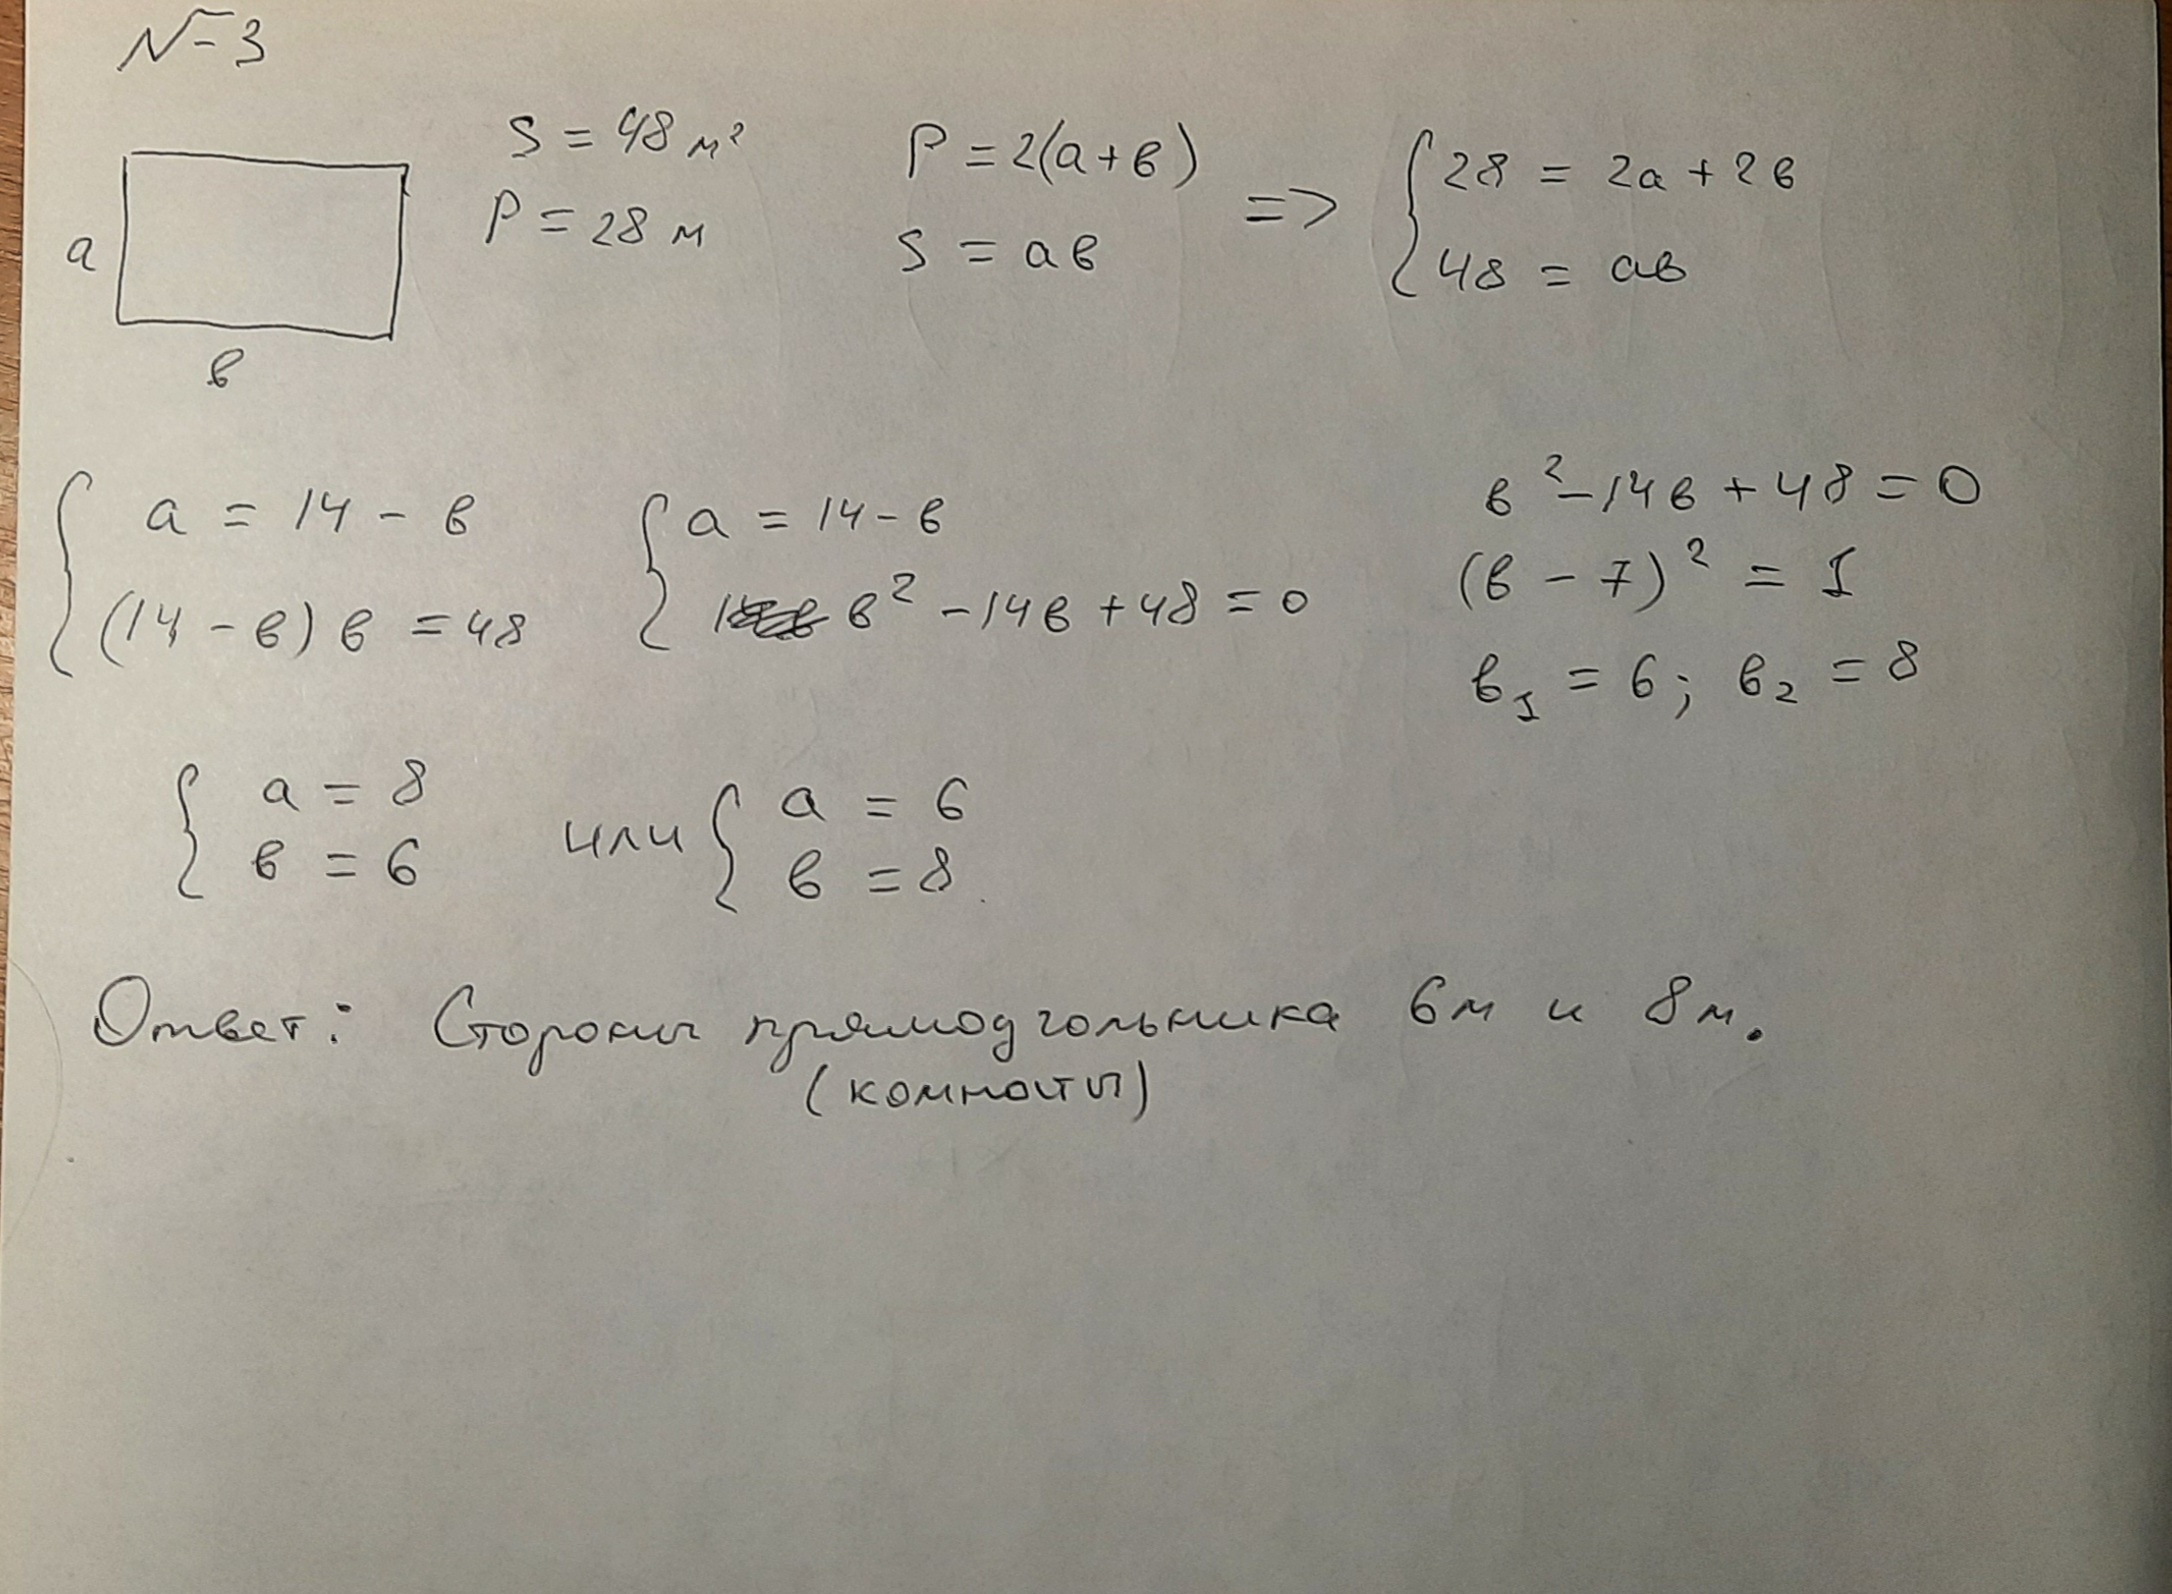 № 3
S = 48 м²
P = 28 м
a
в
P = 2(a+в)
S = aв
=>
{ 28 = 2a + 2в
48 = aв
{ a = 14 - в
(14 - в) в = 48
{ a = 14 - в
в² - 14в + 48 = 0
в² - 14в + 48 = 0
(в - 7)² = 1
в₁ = 6; в₂ = 8
{ a = 8
в = 6
или
{ a = 6
в = 8
Ответ: Стороны прямоугольника 6м и 8м.
(комнаты)